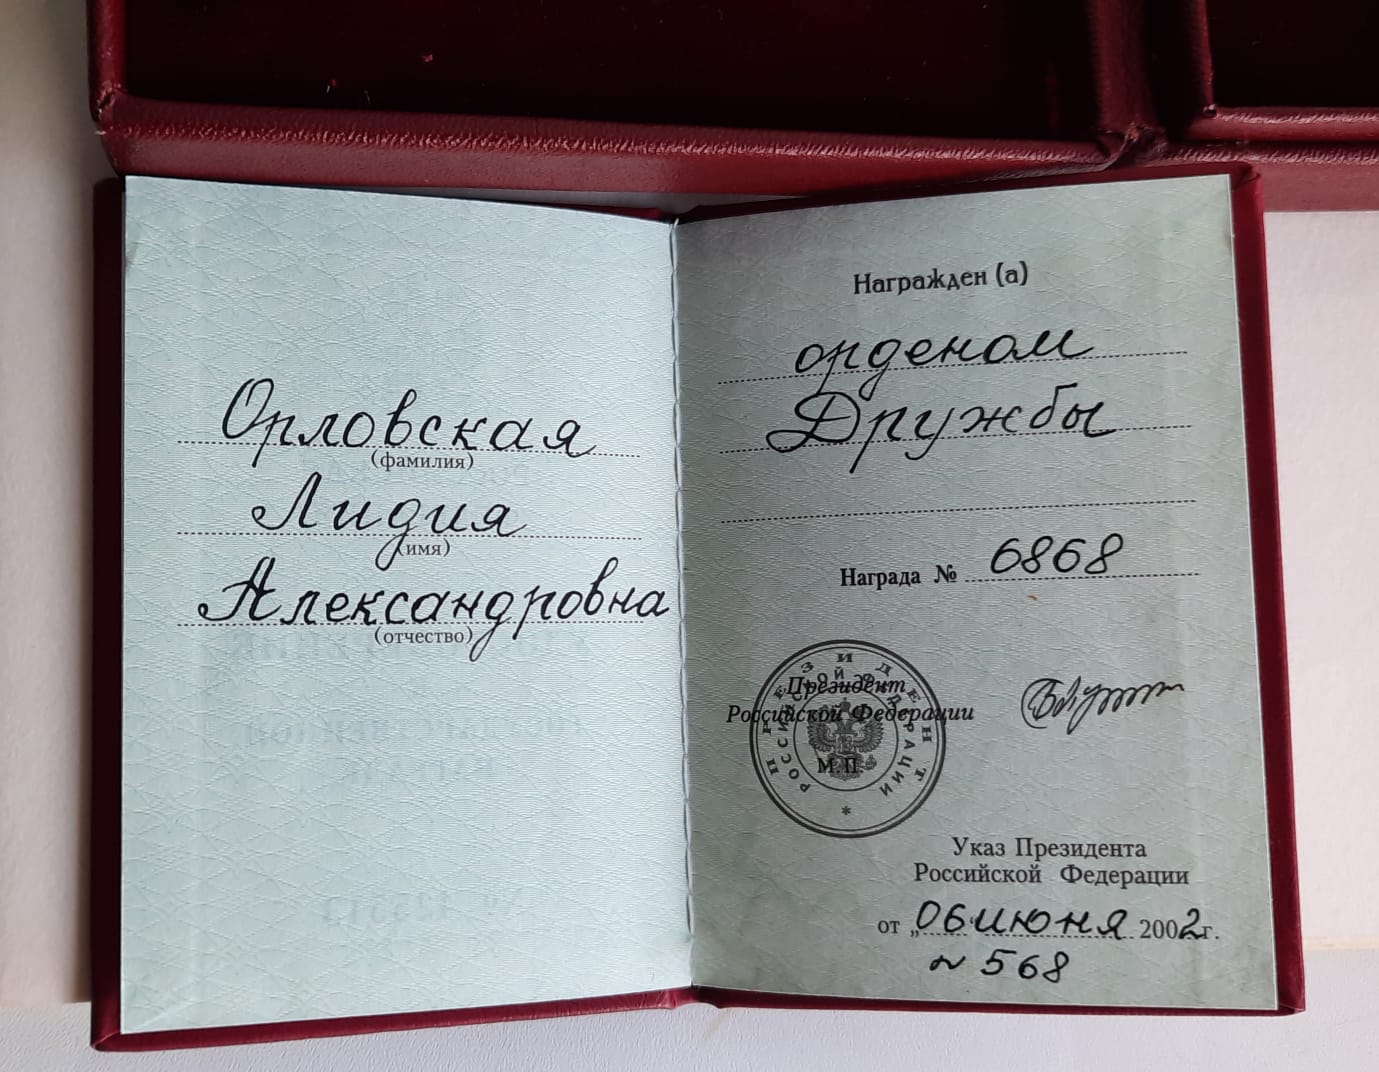 Орловская
(фамилия)
Лидия
(имя)
Александровна
(отчество)
Награжден (а)
орденом
Дружбы
Награда № 6868
Президент
Российской Федерации
М.П.
ПРЕЗИДЕНТ
РОССИЙСКОЙ ФЕДЕРАЦИИ
*
Указ Президента
Российской Федерации
от „06“ июня 2002г.
~ 568